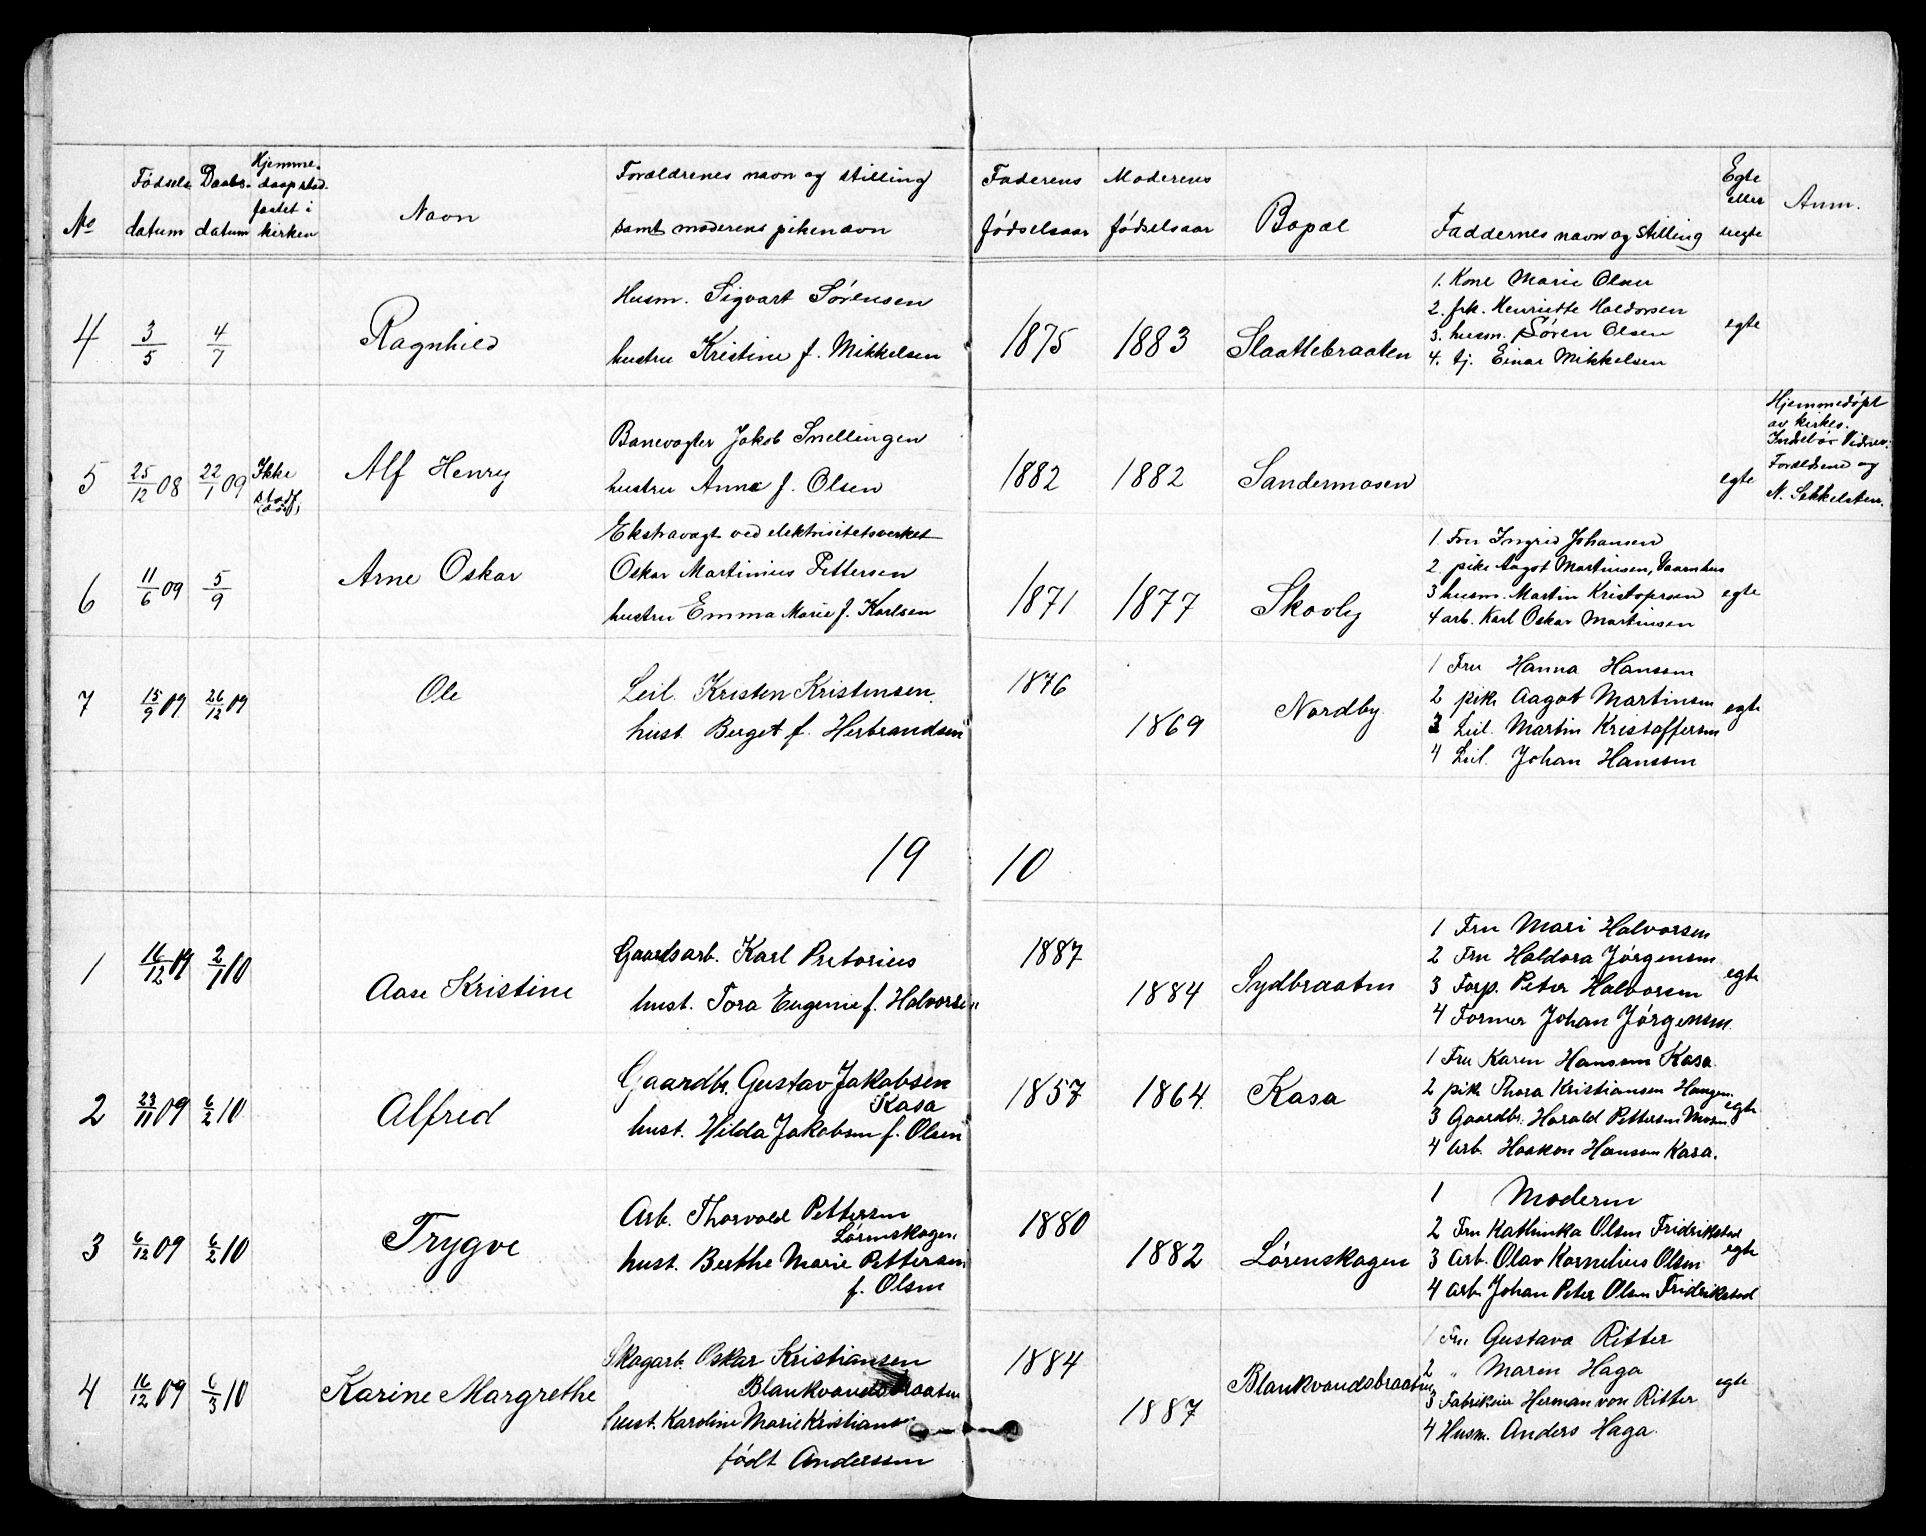 No
Fødsels datum
Daabs- datum
Hjemme-
daap stad.
fæstet i
kirken
Navn
Forældrenes navn og stilling
samt moderens pikenavn
Faderens
fødselsaar
Moderens
fødselsaar
Bopæl
Faddernes navn og stilling
Egte
eller
uegte
Anm.
4
3/5
4/7
Ragnhild
Husm. Sigvart Sørensen
hustru Kristine f. Mikkelsen
1875
1883
Slaattebraaten
1. Kone Marie Olsen
2. frk. Henriette Haldorsen
3. husm. Søren Olsen
4. tj. Einar Mikkelsen
egte
5
25/12 08
22/1 09
Ikke
stadf.
Alf Henry
Banevogter Jakob Snellingen
hustru Anna f. Olsen
1882
1882
Sandermosen
egte
Hjemmedøpt
av kirkes.
Forældrene og
6
11/6 09
5/9
Arne Oskar
Ekstravagt ved elektrisitetsverket
Oskar Martinius Pettersen
hustru Emma Marie f. Karlsen
1871
1877
Skovly
1 Fru Ingrid Johansen
2. pike Aagot Martinsen, Vaarnhus
3 husm. Martin Kristopersen
4 arb. Karl Oskar Martinsen
egte
7
15/9 09
26/12 09
Ole
Leil. Kristen Kristensen.
hust. Berget f. Herbrandsen
1876
1869
Nordby
1 Fru Hanna Hanssen
2 pik. Aagot Martinsen
3 Leil. Martin Kristoffersen
4 Leil. Johan Hanssen
egte
19 10
1
16/12 09
2/1 10
Aase Kristine
Gaardsarb. Karl Pretorius
hust. Tora Eugenie f. Halvorsen
1887
1884
Sydbraaten
1 Fru Mari Halvorsen
2 Fru Haldora Jørgensen
3 Forp. Peter Halvorsen
4 Former Johan Jørgensen
egte
2
23/11 09
6/2 10
Alfred
Gaardbr. Gustav Jakobsen
Kasa
hust. Hilda Jakobsen f. Olsen
1857
1864.
Kasa
1 Fru Karen Hanssen Kasa
2 pik. Thora Kristiansen Haugen
3 Gaardbr. Harald Pettersen Mosen
4 Arb. Haakon Hanssen Kasa.
egte
3
6/12 09
6/2 10
Trygve
Arb. Thorvald Pettersen
Lørenskogen
hust. Berthe Marie Pettersen
f. Olsen
1880
1882
Lørenskogen
1 Moderen
2 Fru Kathinka Olsen Fridrikstad
3 Arb. Olav Kornelius Olsen
4 Arb. Johan Peter Olsen Fridrikstad
egte
4
16/12 09
6/3 10
Karine Margrethe
Skogarb. Oskar Kristiansen
Blankvandsbraaten
hust. Karoline Marie Kristians.
født Anderssen
1884
1887
Blankvandsbraaten
1 Fru Gustava Ritter
2 " Maren Haga
3 Fabrikeier Herman von Ritter
4 Husm. Anders Haga.
egte